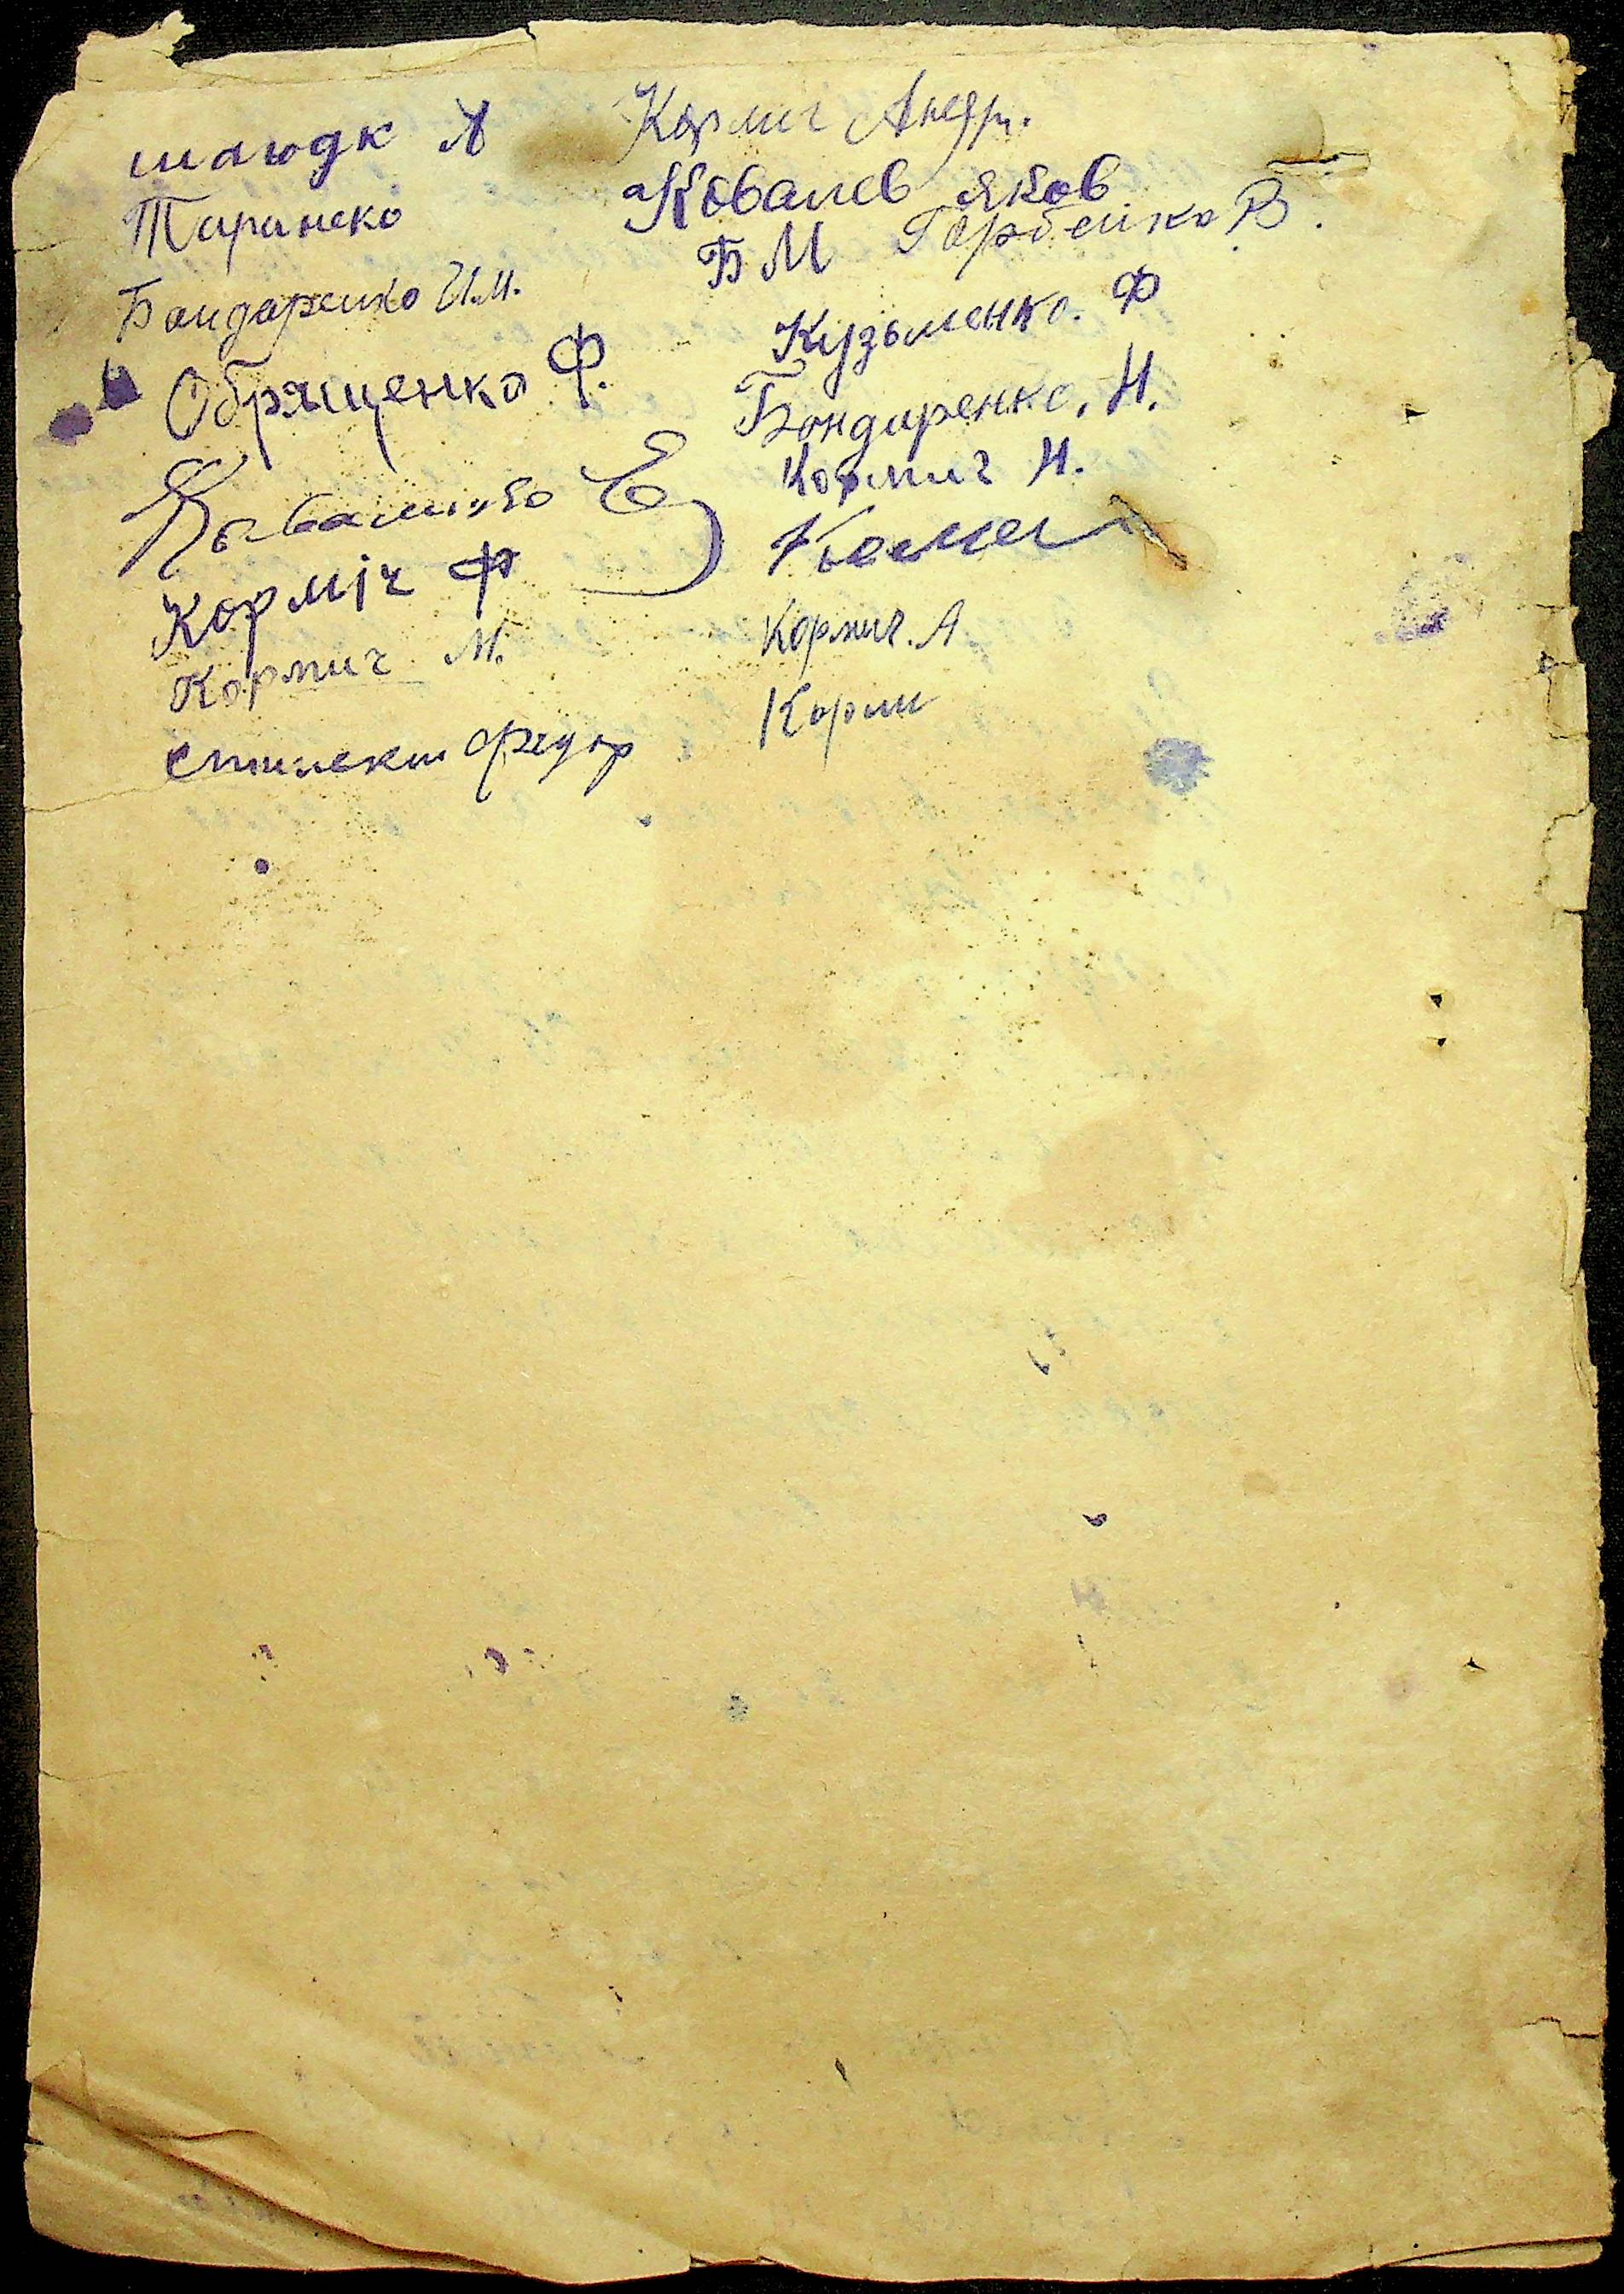 шаюдк А
Таранеко
Бондаренко И.М.
Обрященко Ф.
Е
Корміч Ф
Кормич М.
Федор
Кормич Андр.
Ковалев Яков
Горбейко В.
БМ
Кузьменко. Ф
Бондаренко. Н.
Кормич Н.
Кормич. А
Корми